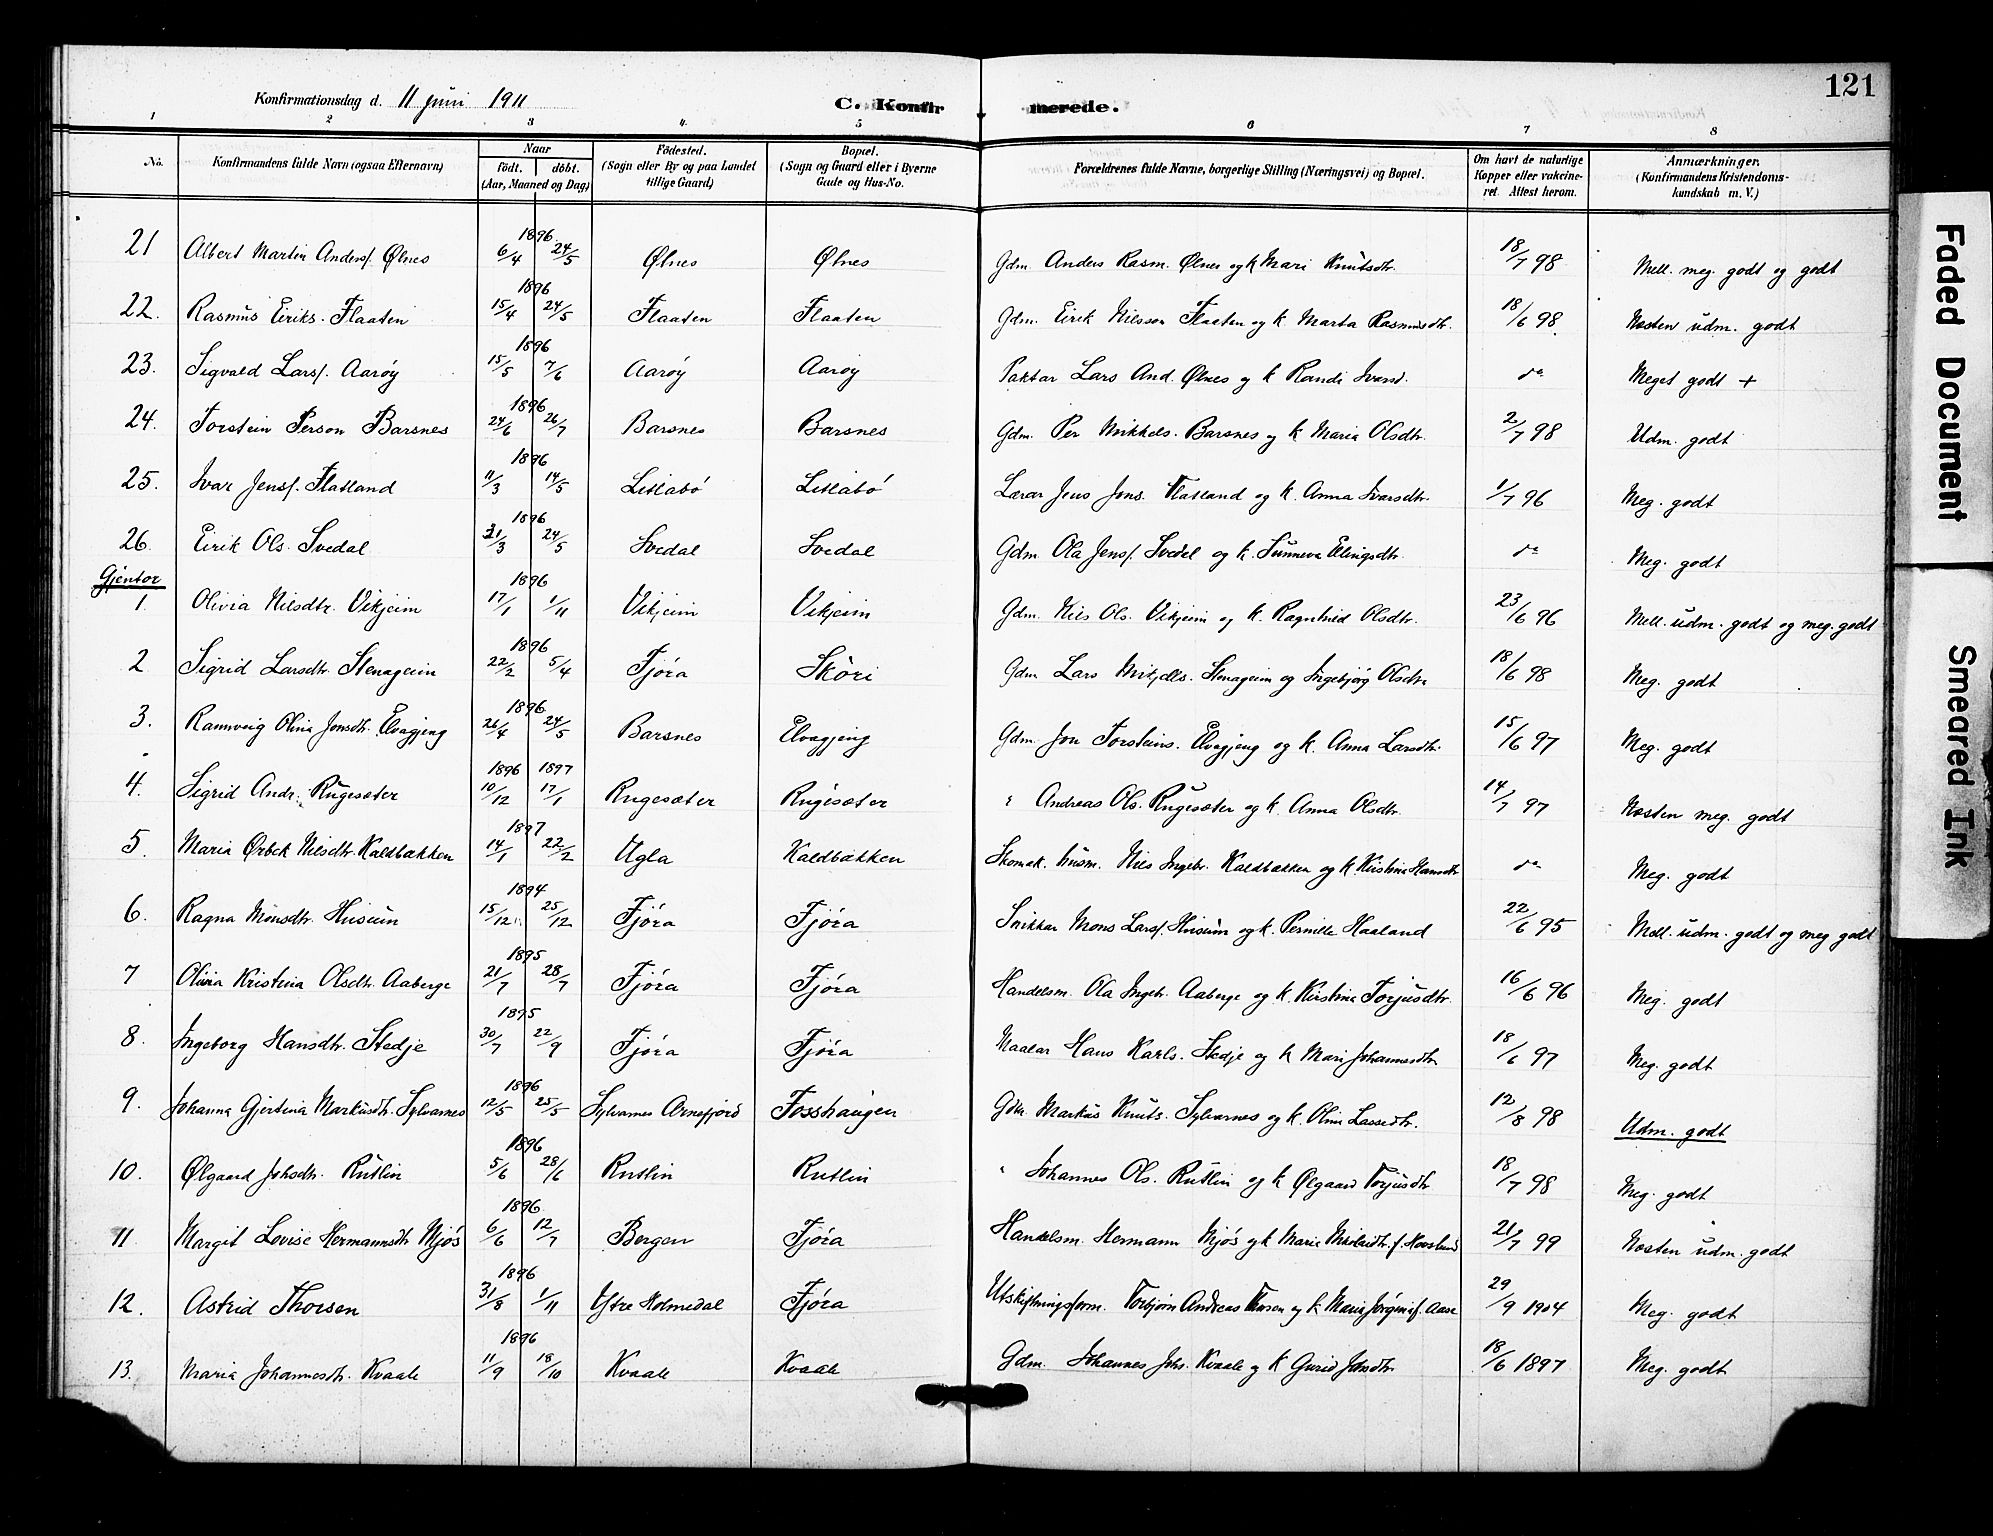 121
Konfirmationsdag d. 11 juni 1911 C. Konfirmerede.
1 2 3 4 5 6 7 8
No. Konfirmandens fulde Navn (ogsaa Efternavn) Naar født. døbt. (Aar, Maaned og Dag) Fødested. (Sogn eller By og paa Landet tillige Gaard) Bopæl. (Sogn og Gaard eller i Byerne Gade og Hus-No. Forældrenes fulde Navne, borgerlige Stilling (Næringsvei) og Bopæl. Om havt de naturlige Kopper eller vakcineret. Attest herom. Anmærkninger. (Konfirmandens Kristendomskundskab m. V.)
21 Albert Martin Anders. Ølnes 1896 6/4 24/5 Ølnes Ølnes Gdm. Anders Rasm. Ølnes og k Mari Knutsdtr. 18/7 98 Mell. meg. godt og godt
22. Rasmus Eiriks. Flaaten 1896 15/4 24/5 Flaaten Flaaten Gdm. Eirik Nilsson Flaaten og k Marta Rasmusdtr. 18/6 98 Næsten udm. godt
23. Sigvald Lars. Aarøy 1896 15/5 7/6 Aarøy Aarøy Paktar Lars And. Ølnes og k Randi Ivarsd. do Meget godt +
24. Torstein Person Barsnes 1896 24/6 26/7 Barsnes Barsnes Gdm. Per Mikkels. Barsnes og k Maria Olsdtr. 2/7 98 Udm. godt
25. Ivar Jens. Flatland 1896 11/3 14/5 Litlabø Litlabø Lærar Jens Jons. Flatland og k. Anna Ivarsdtr. 1/7 96 Meg. godt
26. Eirik Ols. Svedal 1896 31/3 24/5 Svedal Svedal Gdm. Ola Jens. Svedal og k. Sunneva Ellingsdtr. do Meg. godt
Gjentor
1. Olivia Nilsdtr. Vikjeim 1896 17/1 1/11 Vikjeim Vikjeim Gdm. Nils Ols. Vikjeim og k. Ragnhild Olsdtr. 23/6 96 Mell. udm. godt og meg. godt
2 Sigrid Larsdtr. Stenageim 1896 22/2 5/4 Fjøra Skøri Gdm Lars Mikjells. Stenageim og Ingebjørg Olsdtr 18/6 98 Meg. godt
3. Rannveig Olina Jonsdtr. Elvagjeng 1896 26/4 24/5 Barsnes Elvagjeng Gdm. Jon Torsteins. Elvagjeng og k. Anna Larsdtr. 15/6 97 Meg. godt
4. Sigrid Andr. Rugesæter 1896 10/12 1897 17/1 Rugesæter Rugesæter " Andreas Ols. Rugesæter og k. Anna Olsdtr. 14/7 97 Næsten meg. godt
5. Maria Ørbek Nilsdtr. Kaldbakken 1897 14/1 22/2 Ugla Kaldbakken Skomak. husm. Nils Ingebr. Kaldbakken og k Kirstina Hansdtr do Meg. godt
6. Ragna Monsdtr. Husum 1894 15/12 25/12 Fjøra Fjøra Snikkar Mons Lars. Husum og k. Pernille Haaland 22/6 95 Mell. udm. godt og meg godt
7 Olivia Kristina Olsdtr. Aaberge 1895 21/7 28/7 Fjøra Fjøra Handelsm. Ola Ingebr. Aaberge og k. Kirstina Torjusdtr. 16/6 96 Meg. godt
8. Ingeborg Hansdtr. Stedje 1895 30/7 22/9 Fjøra Fjøra Maalar Hans Karls. Stedje og k Mari Johannesdtr 18/6 97 Meg. godt
9. Johanna Gjertina Markusdtr. Sylvarnes 1896 12/5 25/5 Sylvarnes Arnefjord Fosshaugen Gdm. Markus Knuts. Sylvarnes og k. Olina Lassedtr. 12/8 98 Udm. godt
10. Ølgaard Johsdtr. Rutlin 1896 5/6 28/6 Rutlin Rutlin " Johannes Ols. Rutlin og k Ølgaard Torjusdtr 18/7 98 Meg. godt
11 Margit Lovise Hermannsdtr Mjøs 1896 6/6 12/7 Bergen Fjøra Handelsm. Hermann Mjøs og k Marie Nikolaidtr. f. 21/7 99 Næsten udm. godt
12. Astrid Thorsen 1896 31/8 1/11 Ytre Holmedal Fjøra Utskiftningsform. Torbjørn Andreas Thorsen og k Maria f. Aase 29/9 1904 Meg. godt
13. Maria Johannesdtr. Kvaale 1896 11/9 18/10 Kvaale Kvaale Gdm. Johannes Johs. Kvaale og k Gurid Jonsdtr. 18/6 1897 Meg. godt
Faded Document
Smeared Ink